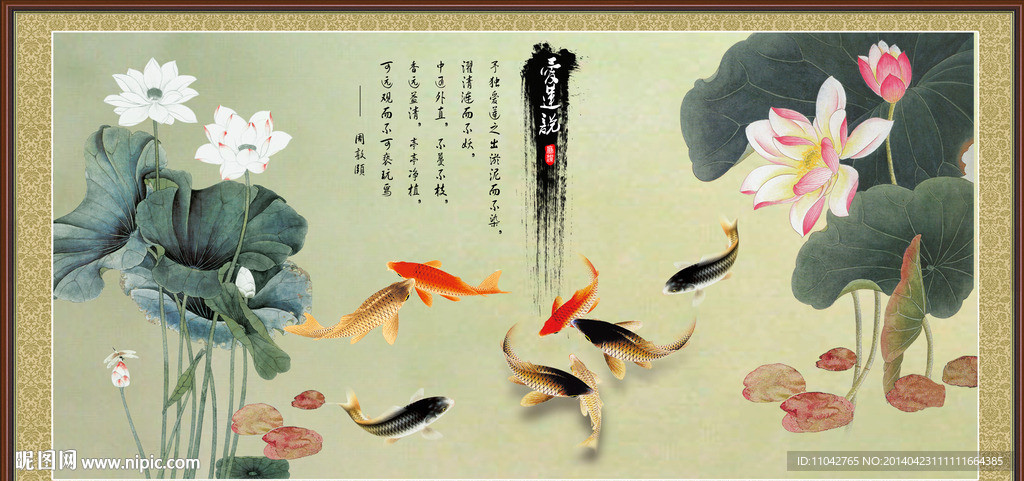 愛蓮說
予独爱莲之出淤泥而不染，
濯清涟而不妖，
中通外直，不蔓不枝，
香远益清，亭亭净植，
可远观而不可亵玩焉
——周敦颐
昵图网 www.nipic.com
ID:11042765 NO:20140423111111664385